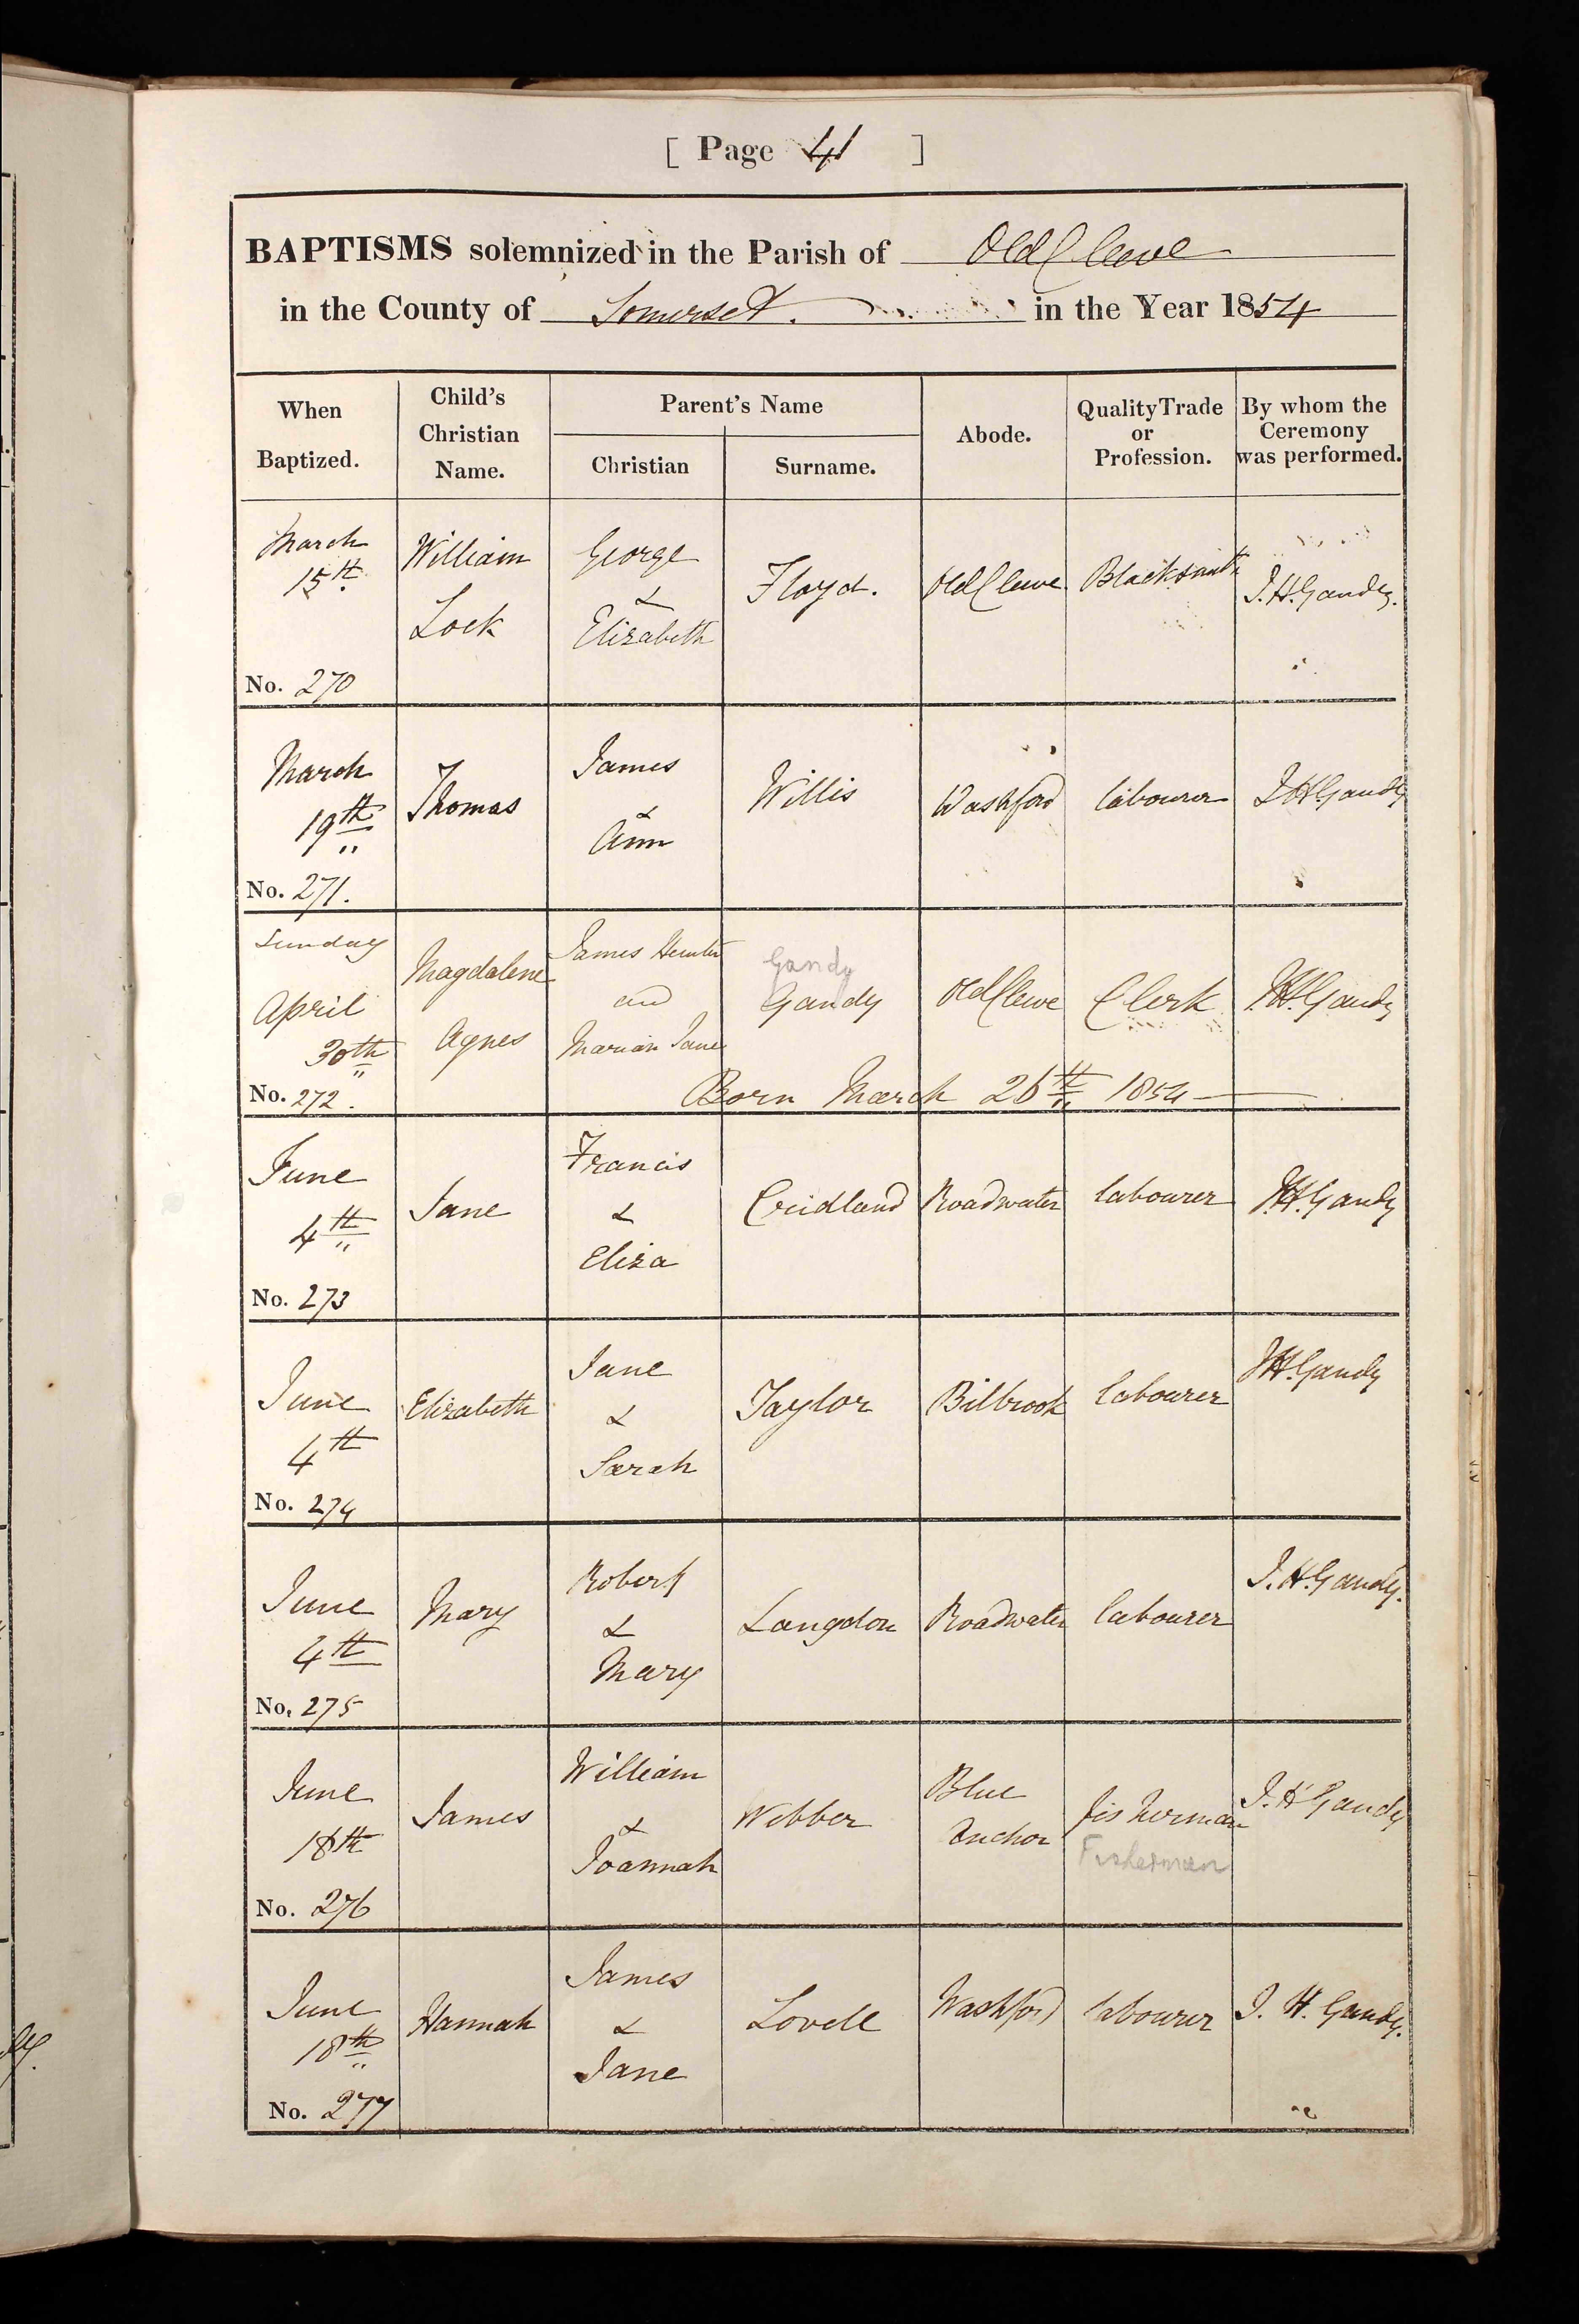 [ Page 41 ]
BAPTISMS solemnized in the Parish of Old Cleeve
in the County of Somerset. in the Year 1854
When Baptized. Child's Christian Name. Parent's Name Christian Surname. Abode. Quality Trade or Profession. By whom the Ceremony was performed.
March 15th. William Lock George & Elizabeth Floyd. Old Cleeve Blacksmith J. H. Gandy.
No. 270
March 19th Thomas James & Ann Willis Washford labourer J H Gandy
No. 271.
Sunday April 30th Magdalene Agnes James Hunter and Marian Jane Gandy Gandy Old Cleeve Clerk J. H. Gandy
No. 272. Born March 26th 1854
June 4th Jane Francis & Eliza Cridland Roadwater labourer J. H. Gandy
No. 273
June 4th Elizabeth Jane & Sarah Taylor Bilbrook labourer J H. Gandy
No. 274
June 4th Mary Robert & Mary Langdon Roadwater labourer J. H. Gandy.
No. 275
June 18th James William & Joannah Webber Blue Anchor fisherman Fisherman J. H Gandy
No. 276
June 18th Hannah James & Jane Lovell Washford labourer J. H. Gandy.
No. 277